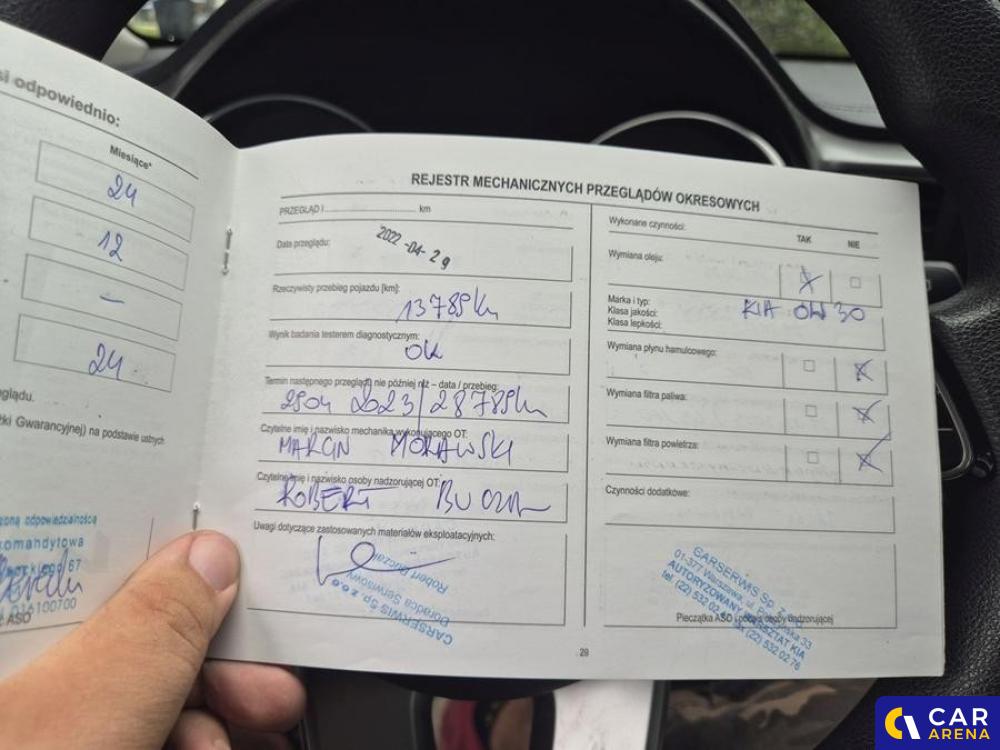 si odpowiednio:
Miesiące*
24
12
–
24
eglądu.
żki Gwarancyjnej) na podstawie
oną odpowiedzialnością
komandytowa
67
016100700
ASO
REJESTR MECHANICZNYCH PRZEGLĄDÓW OKRESOWYCH
PRZEGLĄD I .......... km
Data przeglądu:
2022-04-29
Rzeczywisty przebieg pojazdu [km]:
13789km
Wynik badania testerem diagnostycznym:
OK
Termin następnego przeglądu nie później niż – data / przebieg:
2904 2023/28789km
Czytelne imię i nazwisko mechanika wykonującego OT:
MARCIN MORAWSKI
Czytelne imię i nazwisko osoby nadzorującej OT:
ROBERT BUCZAK
Uwagi dotyczące zastosowanych materiałów eksploatacyjnych:
Robert Buczak
Doradca Serwisowy
CARSERWIS Sp. z o.o.
Wykonane czynności:
TAK NIE
Wymiana oleju:
Marka i typ:
KIA 0W30
Klasa jakości:
Klasa lepkości:
Wymiana płynu hamulcowego:
Wymiana filtra paliwa:
Wymiana filtra powietrza:
Czynności dodatkowe:
CARSERWIS Sp. z o.o.
01-377 Warszawa, ul. 33
AUTORYZOWANY WARSZTAT KIA
tel. (22) 532 02 fax (22) 532 02 76
Pieczątka ASO i podpis osoby nadzorującej
29
CAR
ARENA